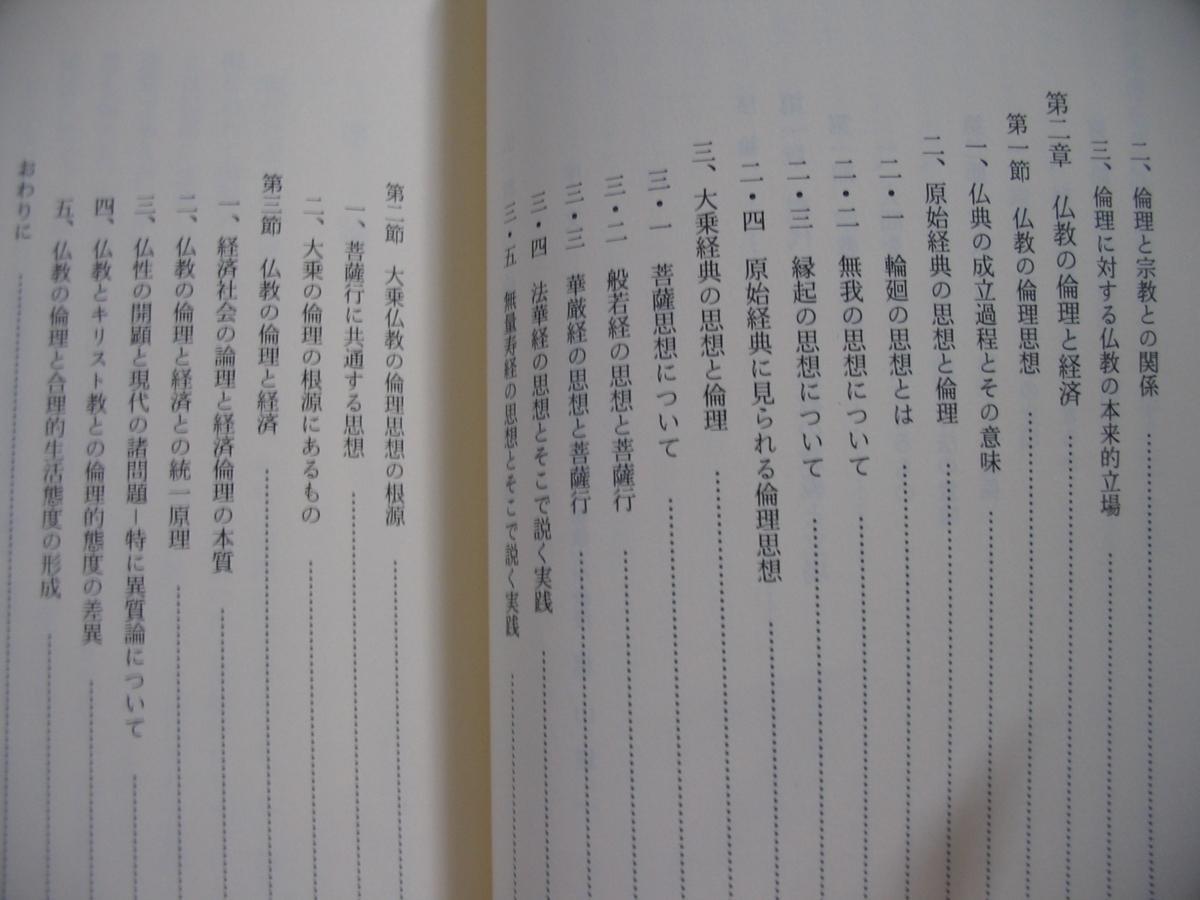 二、倫理と宗教との関係
三、倫理に対する仏教の本来的立場
第二章 仏教の倫理と経済
第一節 仏教の倫理思想
一、仏典の成立過程とその意味
二、原始経典の思想と倫理
二・一 輪廻の思想とは
二・二 無我の思想について
二・三 縁起の思想について
二・四 原始経典に見られる倫理思想
三、大乗経典の思想と倫理
三・一 菩薩思想について
三・二 般若経の思想と菩薩行
三・三 華厳経の思想と菩薩行
三・四 法華経の思想とそこで説く実践
三・五 無量寿経の思想とそこで説く実践
第二節 大乗仏教の倫理思想の根源
一、菩薩行に共通する思想
二、大乗の倫理の根源にあるもの
第三節 仏教の倫理と経済
一、経済社会の論理と経済倫理の本質
二、仏教の倫理と経済との統一原理
三、仏性の開顕と現代の諸問題－特に異質論について
四、仏教とキリスト教との倫理的態度の差異
五、仏教の倫理と合理的生活態度の形成
おわりに